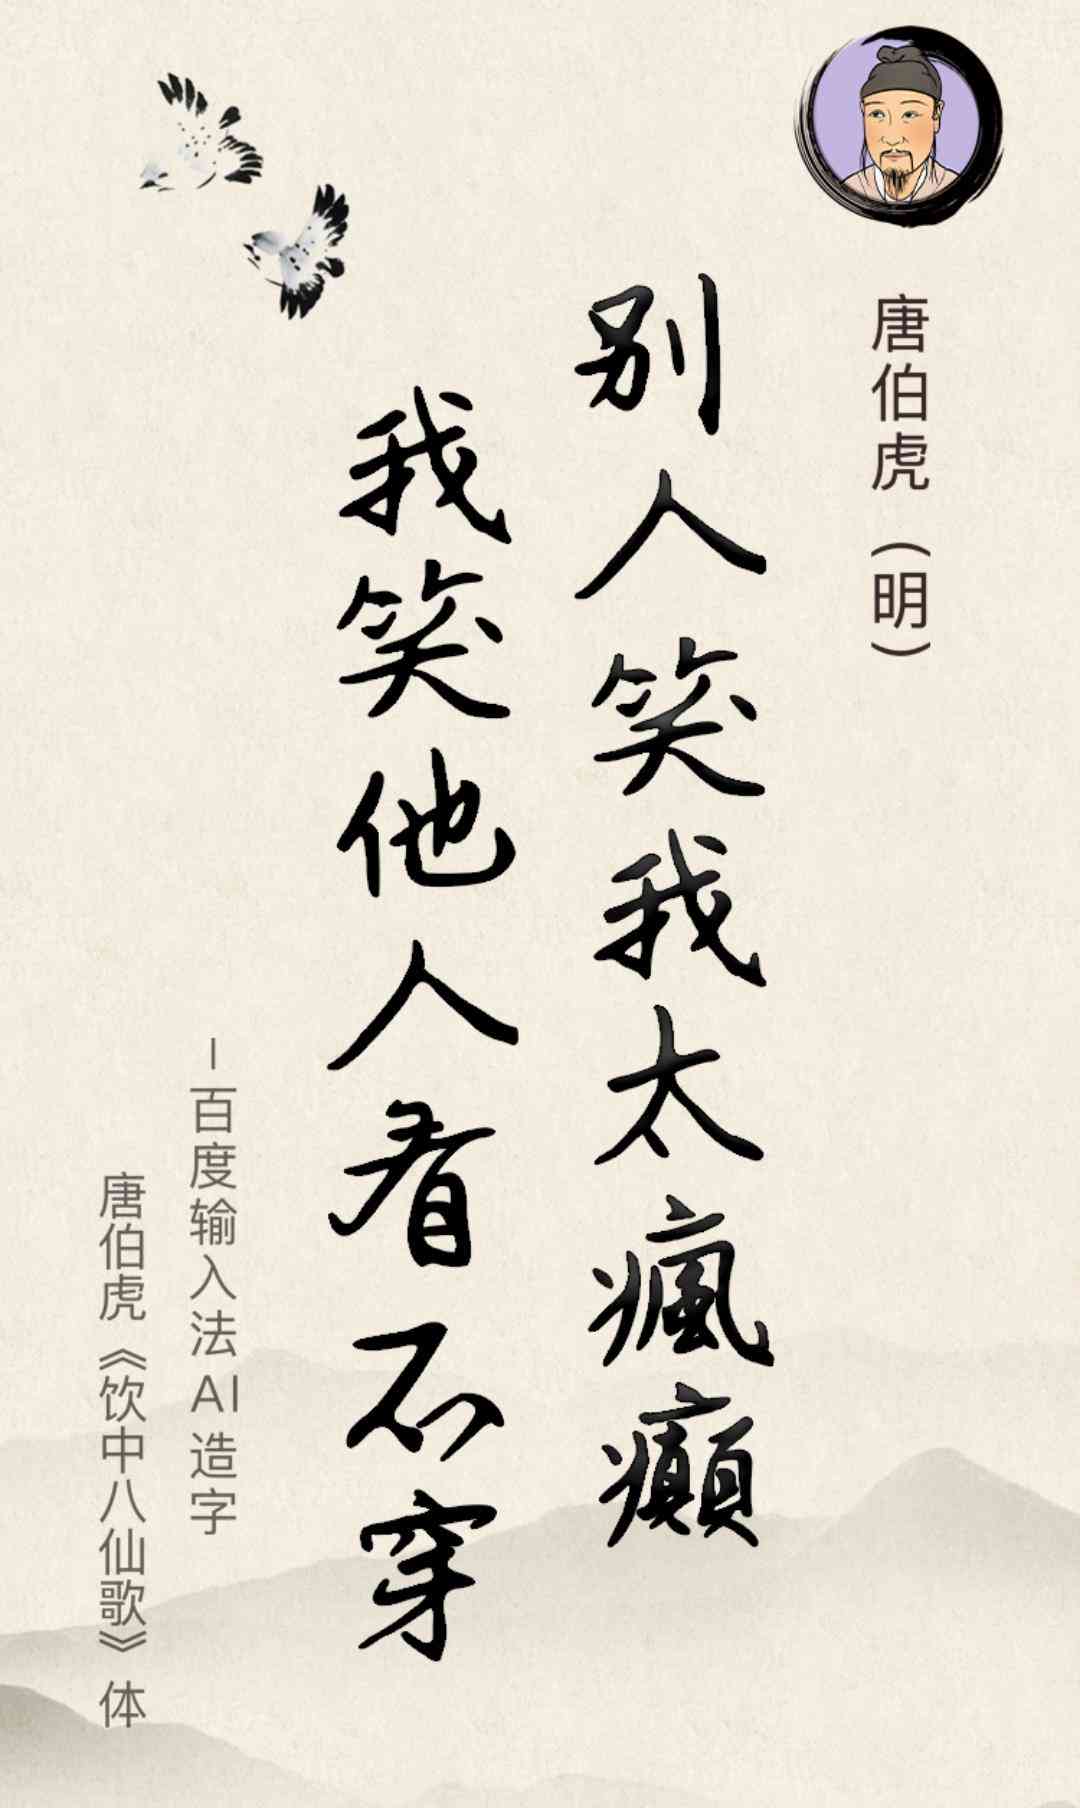 唐伯虎（明）
别人笑我太瘋癲
我笑他人看不穿
–百度输入法 AI 造字
唐伯虎《饮中八仙歌》体